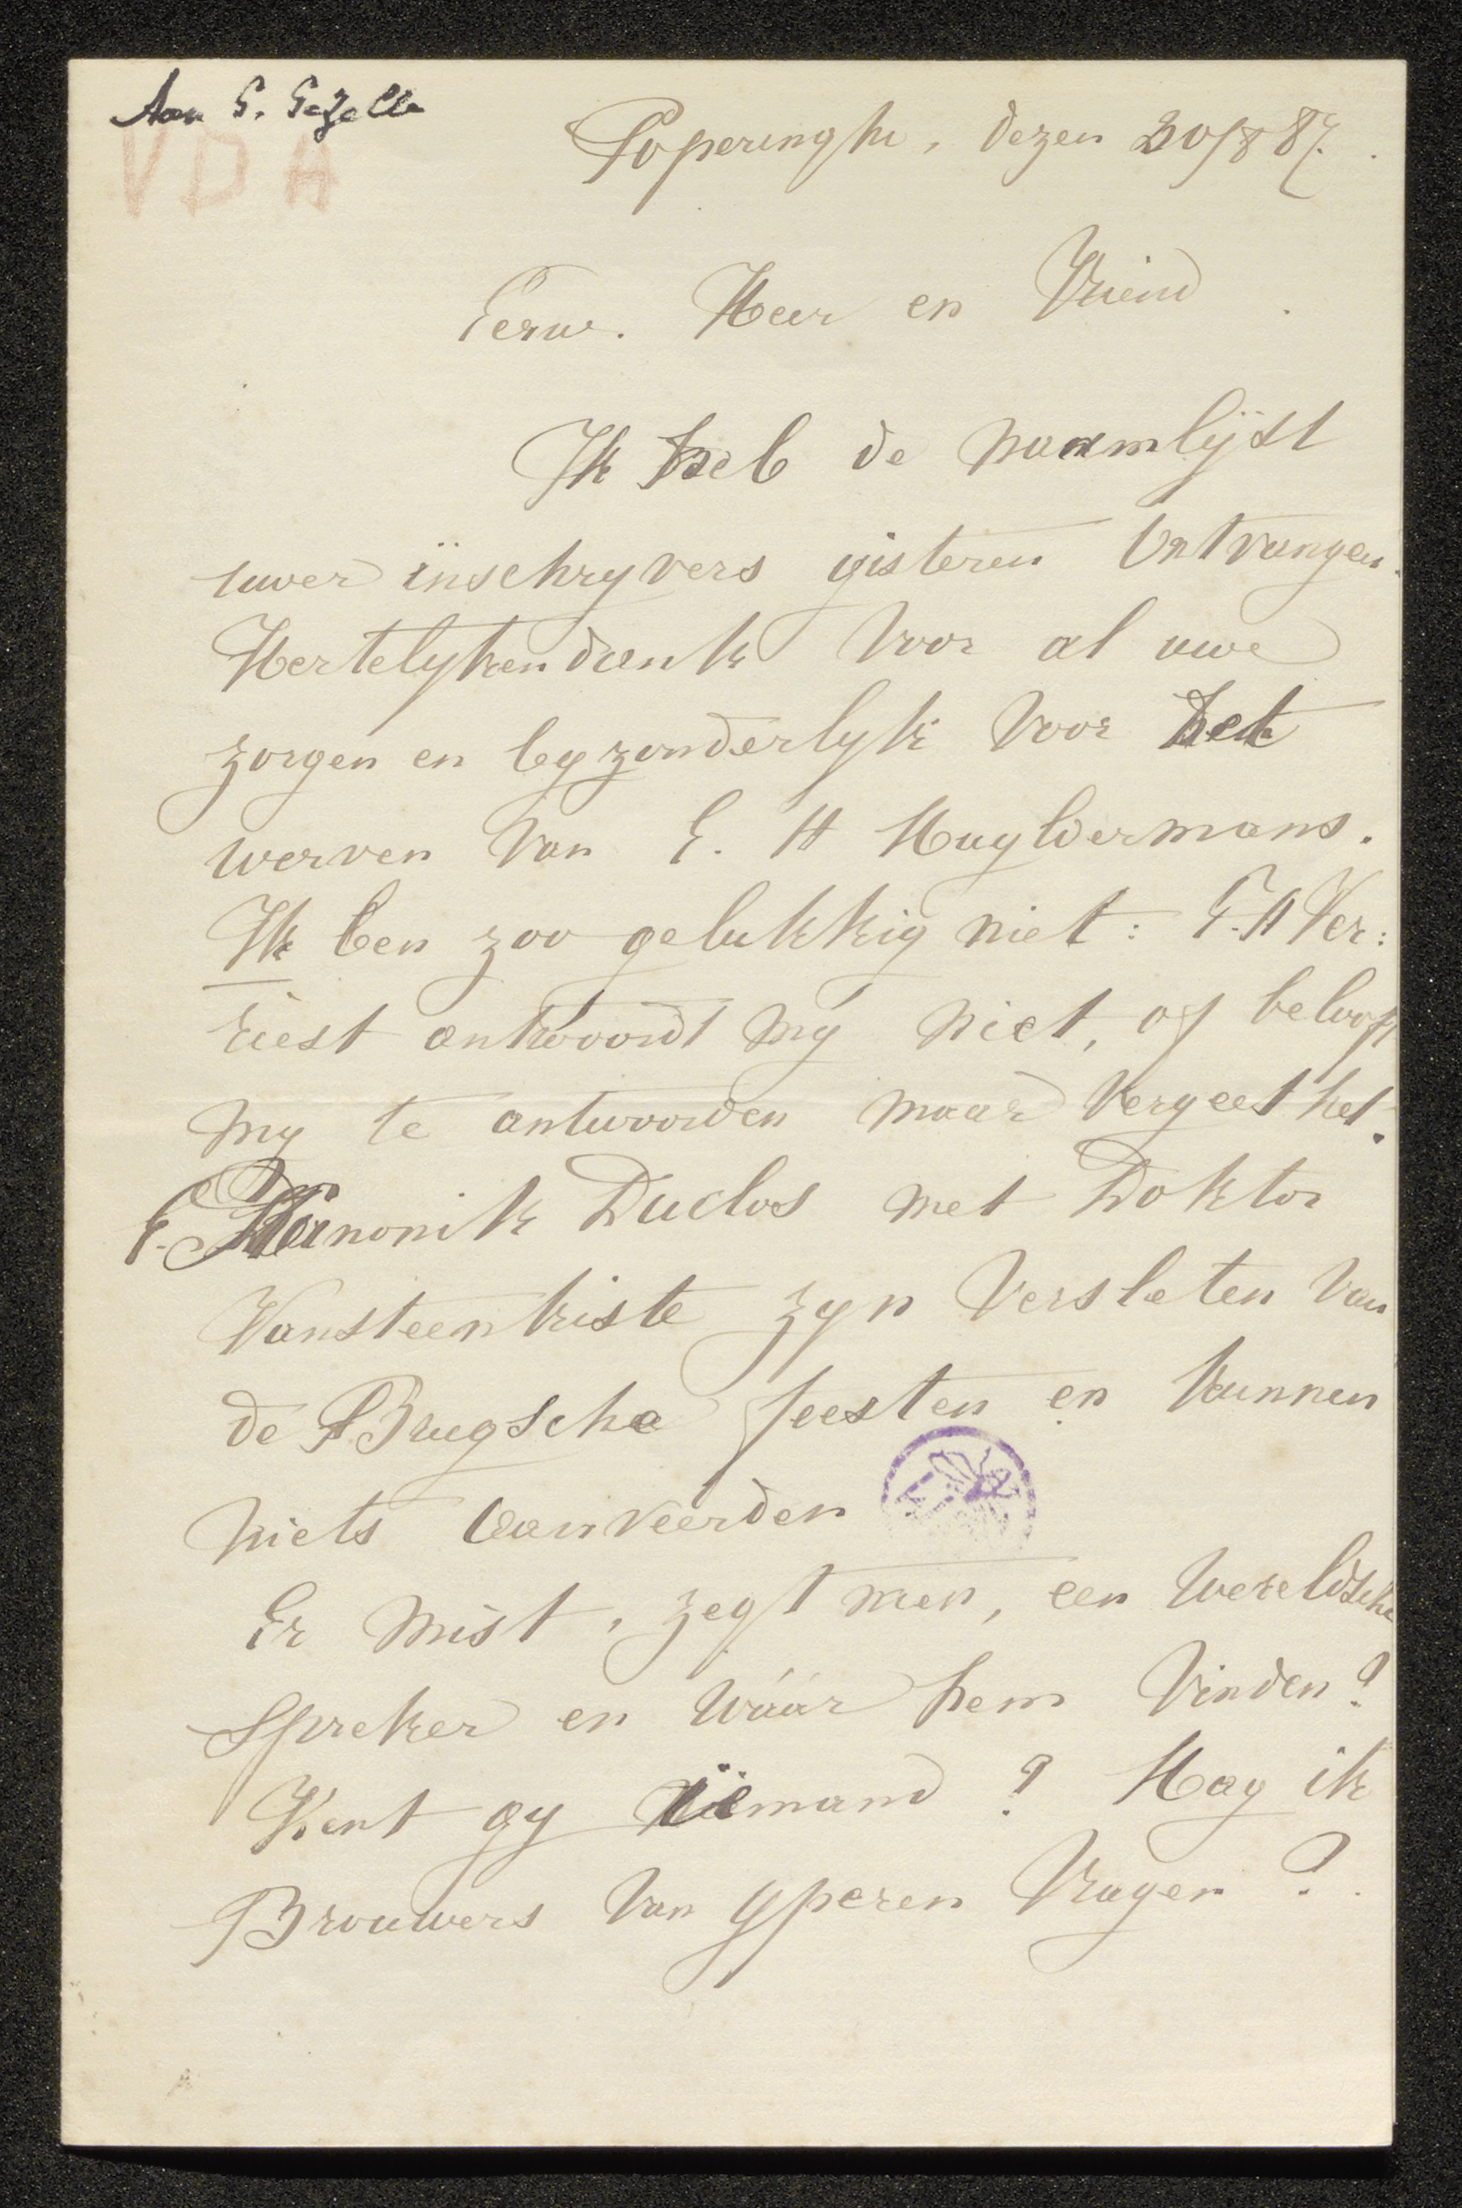 Aan G. Gezelle
VDA
Poperinghe, dezen 20/8 87.
Eerw. Heer en Vriend
Ik heb de naamlÿst
uwer inschryvers gisteren ontvangen.
Hertelyken dank voor al uwe
zorgen en byzonderlyk voor het
werven van E. H Muyldermans.
Ik ben zoo gelukkig niet: E. H Ver:
riest antwoordt my niet, of belooft
my te antwoorden maar vergeet het.
E. Kanonik Duclos met Doktor
Vansteenkiste zyn versleten van
de Brugsche feesten en kunnen
niets aanveerden
Er mist, zegt men, een wereldsche
spreker en wáár hem vinden?
Kent gy iemand? Mag ik
Brouwers van Yperen vragen?